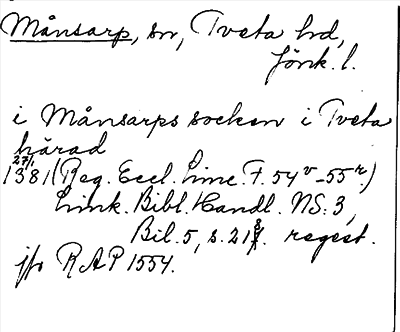 Månsarp, sn, Tveta hd,
Jönk. l.
i Månsarps socken i Tveta
härad
27/1 1381 (Reg. Eccl. Linc. F. 54v-55r.)
Link. Bibl. Handl. NS. 3,
Bil. 5, s. 218. regest.
jfr RAP 1554.